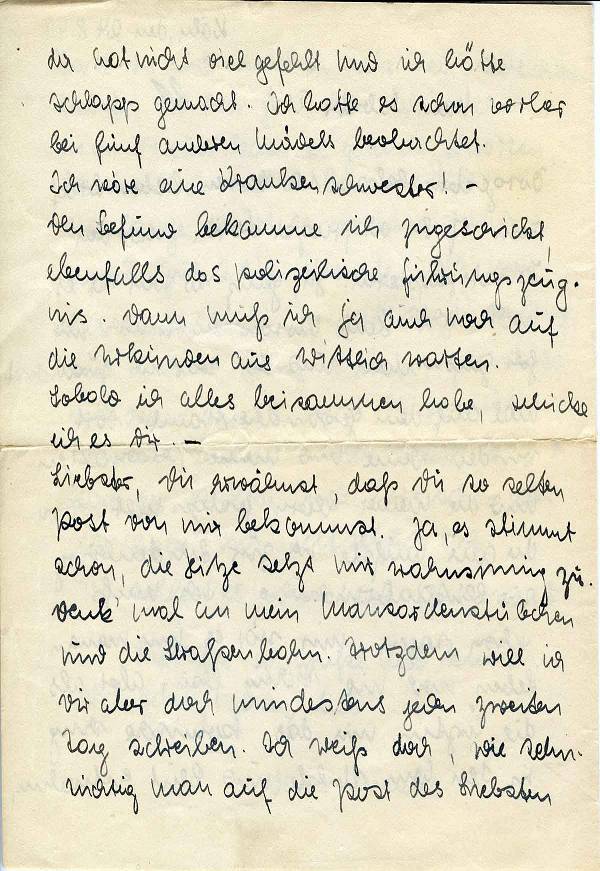 da hat nicht viel gefehlt und ich hätte
schlapp gemacht. Ich hatte es schon vorher
bei fünf anderen Mädels beobachtet.
Ich wäre eine Krankenschwester! –
Den Befund bekomme ich zugeschickt,
ebenfalls das polizeiliche Führungszeug-
nis. Dann muß ich ja auch noch auf
die Urkunden aus Wittlich warten.
Sobald ich alles beisammen habe, schicke
ich es Dir. –
Liebster, Du erwähnst, daß Du so selten
Post von mir bekommst. Ja, es stimmt
schon, die Hitze setzt mir wahnsinnig zu.
Denk' mal an mein Mansardenstübchen
und die Straßenbahn. Trotzdem will ich
Dir aber doch mindestens jeden zweiten
Tag schreiben. Ich weiß doch, wie sehn-
süchtig man auf die Post des Liebsten